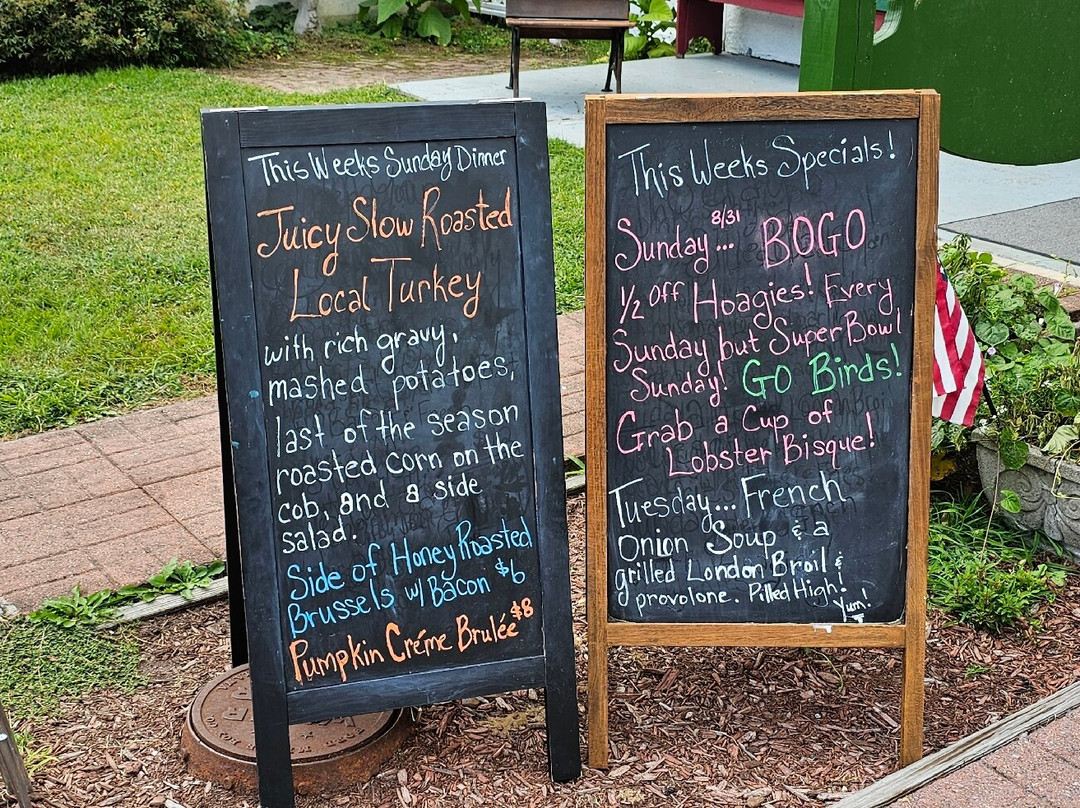 This Weeks Sunday Dinner
Juicy Slow Roasted
Local Turkey
with rich gravy,
mashed potatoes,
last of the season
roasted corn on the
cob, and a side
salad.
Side of Honey Roasted
Brussels w/ Bacon $6
Pumpkin Créme Brulée $8
This Weeks Specials!
8/31
Sunday... BOGO
1/2 off Hoagies! Every
Sunday but Super Bowl
Sunday! Go Birds!
Grab a Cup of
Lobster Bisque!
Tuesday... French
Onion Soup & a
grilled London Broil &
provolone. Pilled High!
Yum!